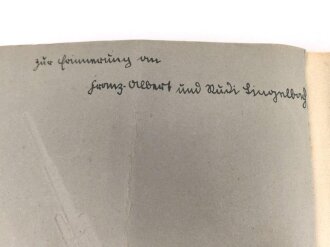 zur Erinnerung an
Franz-Albert und Rudi Lingelbach